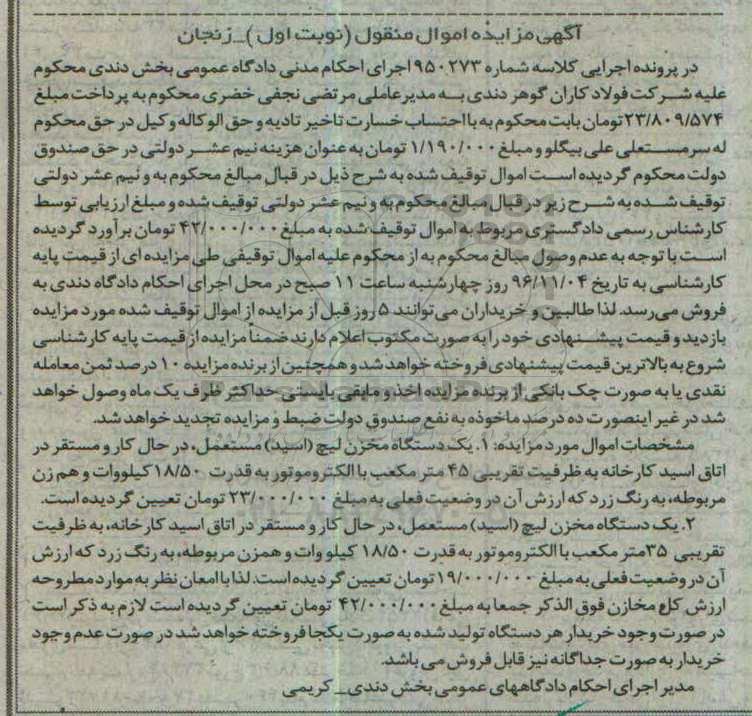 آگهی مزایده اموال منقول (نوبت اول )_زنجان
در پرونده اجرایی کلاسه شماره ۹۵۰۲۷۳ اجرای احکام مدنی دادگاه عمومی بخش دندی محکوم
علیه شرکت فولاد کاران گوهر دندی به مدیرعاملی مرتضی نجفی خضری محکوم به پرداخت مبلغ
۲۳/۸۰۹/۵۷۴تومان بابت محکوم به با احتساب خسارت تاخیر تادیه و حق الوکاله وکیل در حق محکوم
له سرمستعلی علی بیگلو و مبلغ ۱/۱۹۰/۰۰۰ تومان به عنوان هزینه نیم عشر دولتی در حق صندوق
دولت محکوم گردیده است اموال توقیف شده به شرح ذیل در قبال مبالغ محکوم به و نیم عشر دولتی
توقیف شده به شرح زیر در قبال مبالغ محکوم به و نیم عشر دولتی توقیف شده و مبلغ ارزیابی توسط
کارشناس رسمی دادگستری مربوط به اموال توقیف شده به مبلغ ۴۲/۰۰۰/۰۰۰ تومان برآورد گردیده
است با توجه به عدم وصول مبالغ محکوم به از محکوم علیه اموال توقیفی طی مزایده ای از قیمت پایه
کارشناسی به تاریخ ۹۶/۱۱/۰۴ روز چهارشنبه ساعت ۱۱ صبح در محل اجرای احکام دادگاه دندی به
فروش می‌رسد. لذا طالبین و خریداران می‌توانند ۵ روز قبل از مزایده از اموال توقیف شده مورد مزایده
بازدید و قیمت پیشنهادی خود را به صورت مکتوب اعلام دارند ضمناً مزایده از قیمت پایه کارشناسی
شروع به بالاترین قیمت پیشنهادی فروخته خواهد شد و همچنین از برنده مزایده ۱۰ درصد ثمن معامله
نقدی یا به صورت چک بانکی از برنده مزایده اخذ و مابقی بایستی حداکثر ظرف یک ماه وصول خواهد
شد در غیر اینصورت ده درصد ماخوذه به نفع صندوق دولت ضبط و مزایده تجدید خواهد شد.
مشخصات اموال مورد مزایده: ۱. یک دستگاه مخزن لیچ (اسید) مستعمل، در حال کار و مستقر در
اتاق اسید کارخانه به ظرفیت تقریبی ۴۵ متر مکعب با الکتروموتور به قدرت ۱۸/۵۰ کیلووات و هم زن
مربوطه، به رنگ زرد که ارزش آن در وضعیت فعلی به مبلغ ۲۳/۰۰۰/۰۰۰ تومان تعیین گردیده است.
۲. یک دستگاه مخزن لیچ (اسید) مستعمل، در حال کار و مستقر در اتاق اسید کارخانه، به ظرفیت
تقریبی ۳۵متر مکعب با الکتروموتور به قدرت ۱۸/۵۰ کیلو وات و همزن مربوطه، به رنگ زرد که ارزش
آن در وضعیت فعلی به مبلغ ۱۹/۰۰۰/۰۰۰ تومان تعیین گردیده است. لذا با امعان نظر به موارد مطروحه
ارزش کل مخازن فوق الذکر جمعا به مبلغ ۴۲/۰۰۰/۰۰۰ تومان تعیین گردیده است لازم به ذکر است
در صورت وجود خریدار هر دستگاه تولید شده به صورت یکجا فروخته خواهد شد در صورت عدم وجود
خریدار به صورت جداگانه نیز قابل فروش می باشد.
مدیر اجرای احکام دادگاههای عمومی بخش دندی_ کریمی